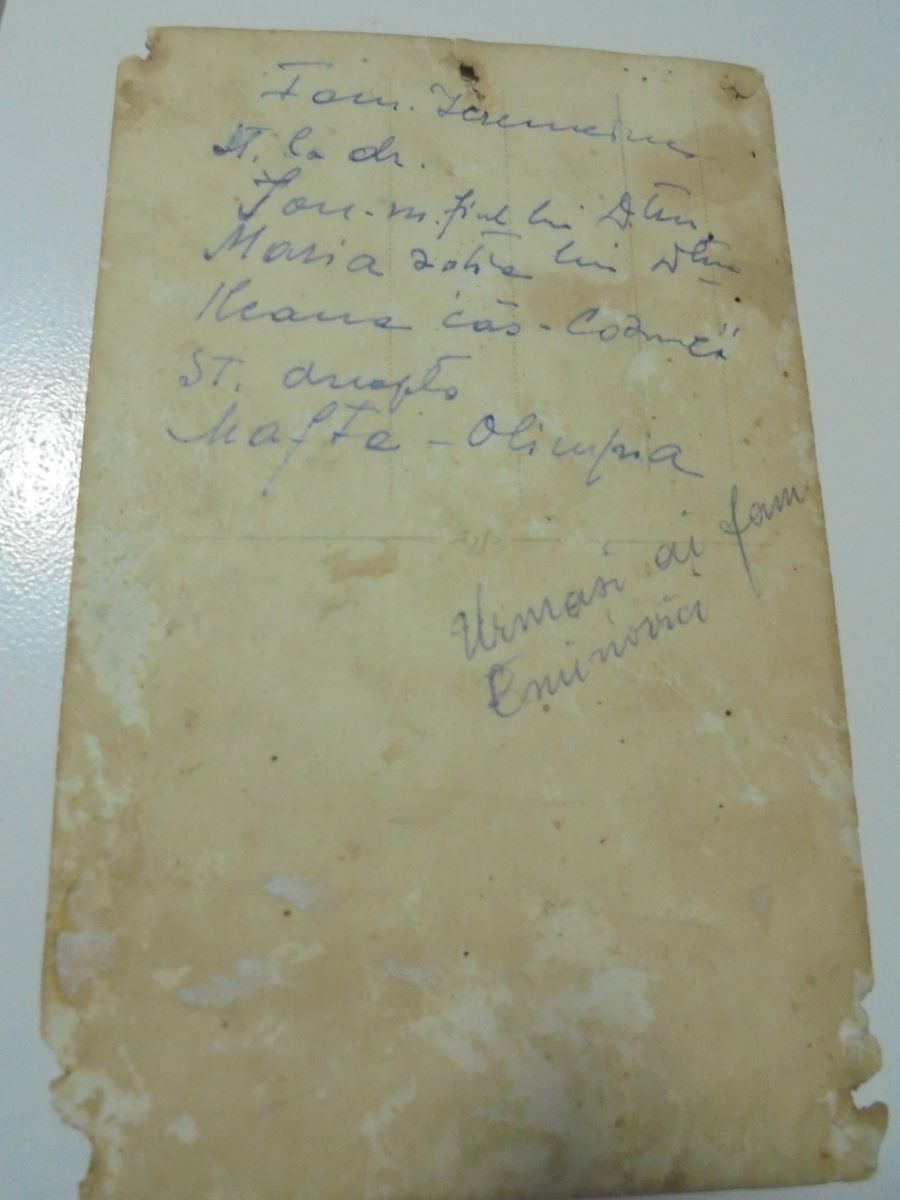 Fam. Ieremeiuc
St. la dr.
Ion - m. fiul lui D.tru
Maria soția lui D-tru
Ileana căs - Cozmei
ST. dreapta
Mafta - Olimpia
Agfa
Urmași ai fam
Eminovici